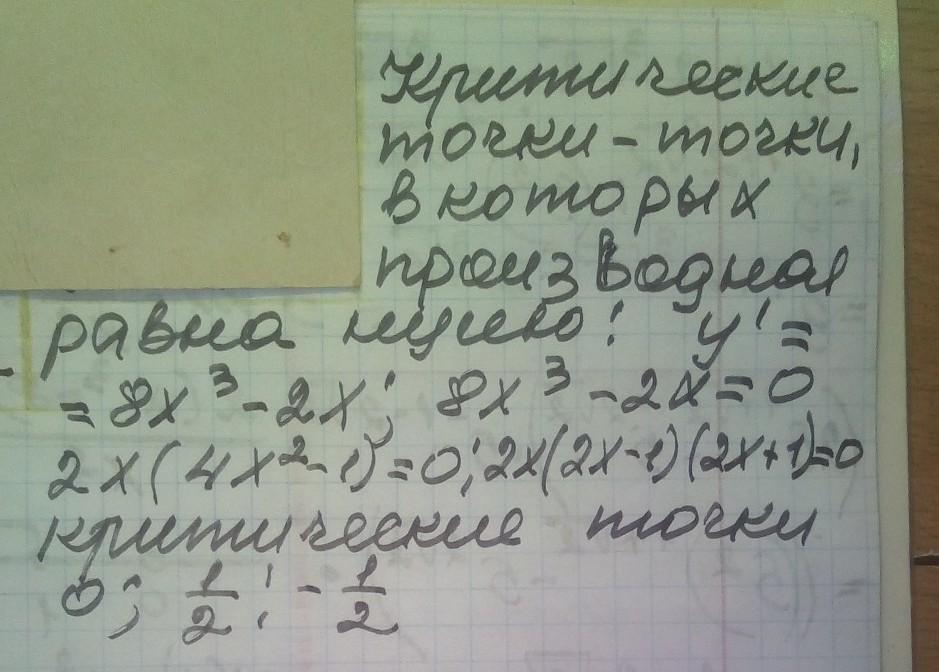 Критические
точки - точки,
в которых
производная
равна нулю: y' =
= 8x³ - 2x; 8x³ - 2x = 0
2x(4x² - 1) = 0; 2x(2x-1)(2x+1)=0
критические точки
0; 1/2; - 1/2